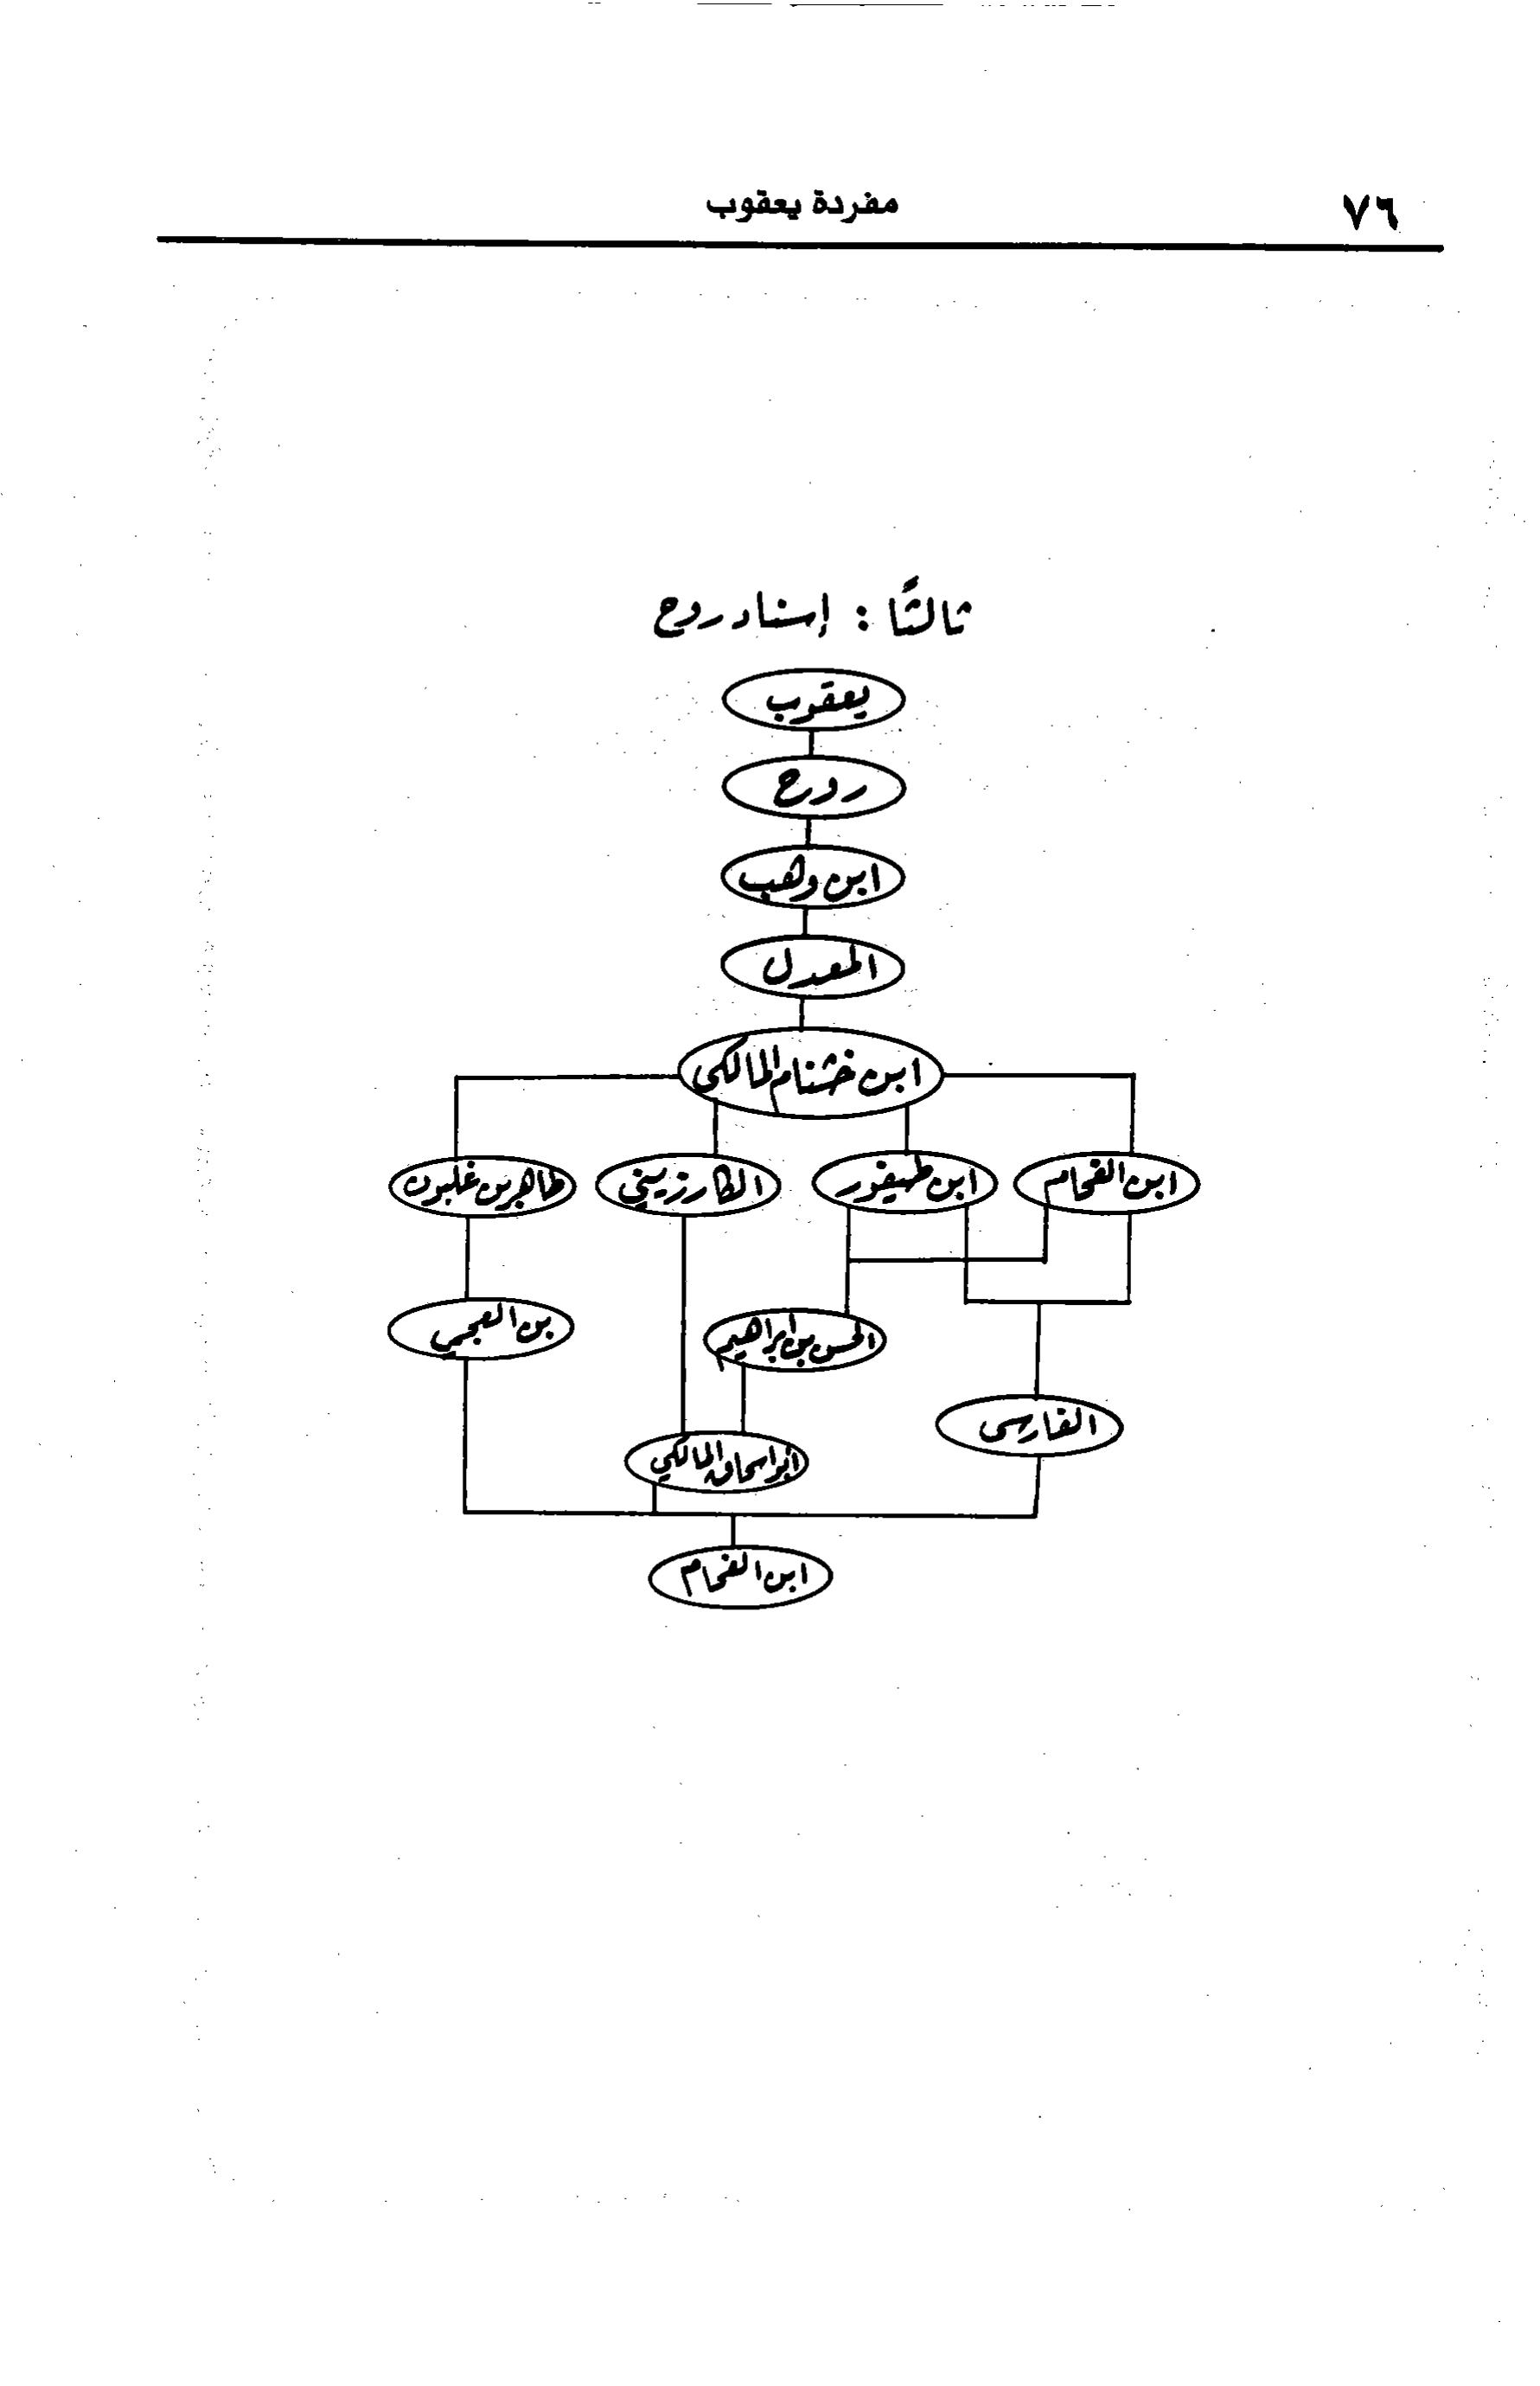 ٧٦
مفردة يعقوب
ثالثًا : إسناد روح
يعقوب
روح
ابن وهب
المعدل
ابن خشنام المالكي
ابن الفحام
ابن طيفور
الكارزيني
طاهر بن غلبون
الحسن بن إبراهيم
بن العجمي
الفارسي
أبو إسحاق المالكي
ابن الفحام